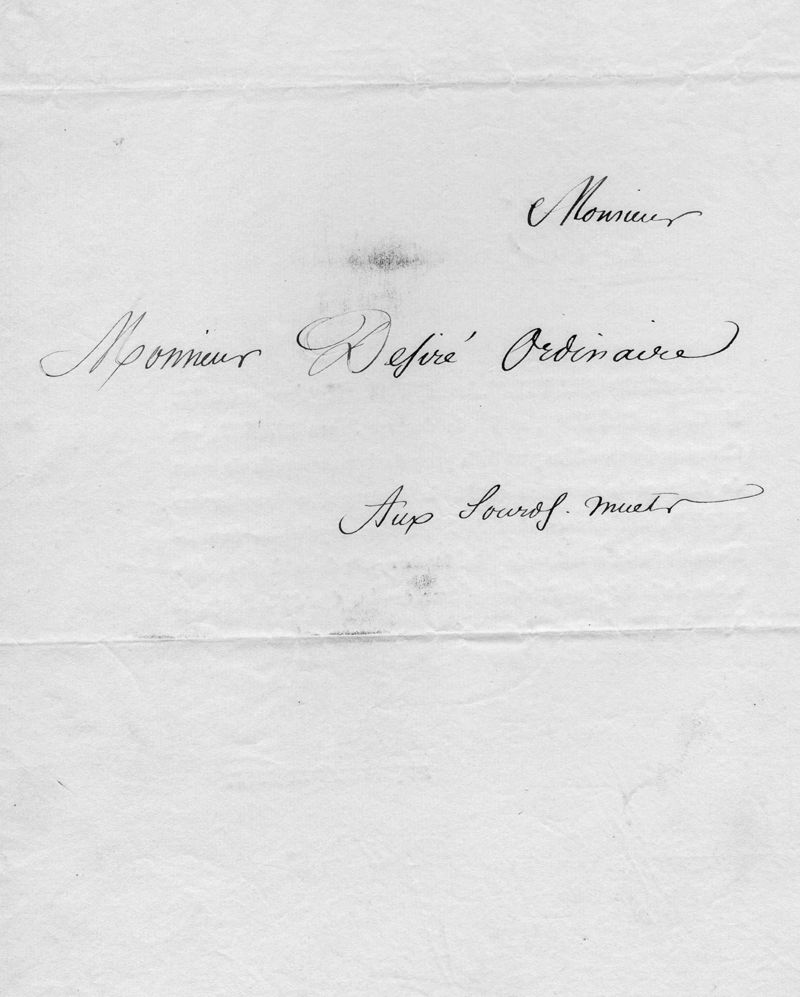 Monsieur
Monsieur Desiré Ordinaire
Aux Sourds-muets